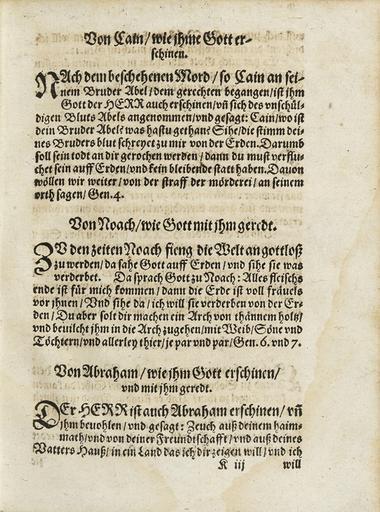 Von Cain/ wie jhme Gott er-
schinen.
NAch dem beschehenen Mord/ so Cain an sei-
nem Bruder Abel/ dem gerechten begangen/ ist jhm
Gott der HERR auch erschinen/ vñ sich des vnschül-
digen Bluts Abels angenommen/ vnd gesagt: Cain/ wo ist
dein Bruder Abel? was hastu gethan? Sihe/ die stimm dei-
nes Bruders blut schreyet zu mir von der Erden. Darumb
soll sein todt an dir gerochen werden/ dann du must verflu-
chet sein auff Erden/ vnd kein bleibende statt haben. Dauon
wöllen wir weiter/ von der straff der mörderei/ an seinem
orth sagen/ Gen. 4.
Von Noach/ wie Gott mit jhm geredt.
ZV den zeiten Noach fieng die Welt an gottloß
zu werden/ da sahe Gott auff Erden/ vnd sihe sie was
verderbet. Da sprach Gott zu Noach: Alles fleischs
ende ist für mich kommen/ dann die Erde ist voll fräuels
vor jhnen/ Vnd sihe da/ ich will sie verderben von der Er-
den/ Du aber solt dir machen ein Arch von thännem holtz/
vnd beuilcht jhm in die Arch zugehen/ mit Weib/ Söne vnd
Töchtern/ vnd allerley thier/ je par vnd par/ Gen. 6. vnd 7.
Von Abraham/ wie jhm Gott erschinen/
vnd mit jhm geredt.
DEr HERR ist auch Abraham erschinen/ vñ
jhm beuohlen/ vnd gesagt: Zeuch auß deinem haim-
math/ vnd von deiner Freundtschafft/ vnd auß deines
Vatters Hauß/ in ein Land das ich dir zeigen will/ vnd ich
K iij will